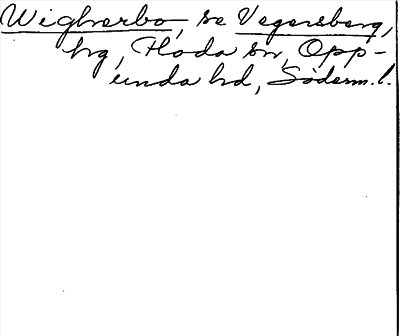 Wigherbo, se Vegersberg,
hg, Floda sn, Opp-
unda hd, Söderm. l.